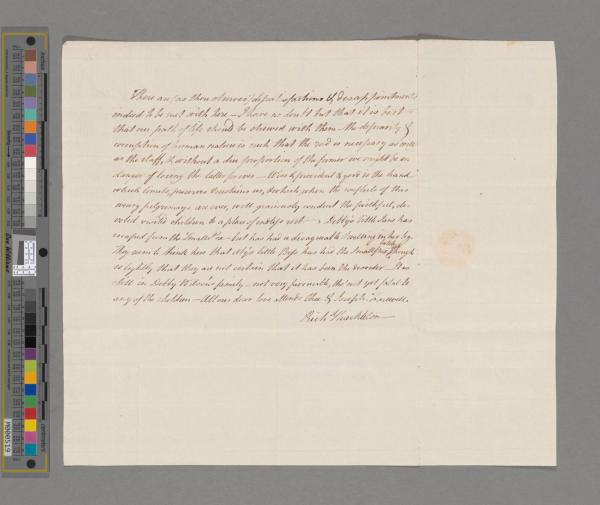 There are (as thou observes) dissatisfactions & disappointments
indeed to be met with here – I have no doubt but that it is best
that our path of life should be strewed with them – the depravity &
corruption of human nature is such that the rod is necessary as well
as the staff, & without a due proportion of the former we might be in
danger of losing the latter for ever – Wise & provident & good is the hand
which limits, preserves & sustains us, & which, when the conflicts of this
weary pilgrimage are over, will graciously conduct the faithful, de-
voted children to a place of endless rest – Debby's little has
escaped from the Small Pox – but has had a disagreeable swelling in her leg.
They seem to think here that little has had the Small Pox, though
so lightly that they are not certain that it has been the disorder – It is
still in Debby Wilson's family – not very favourable, tho' not yet fatal to
any of the children – All our dear love attends thee & Joseph. farewell.
Rich Shackleton
inches
centimetres
M000519